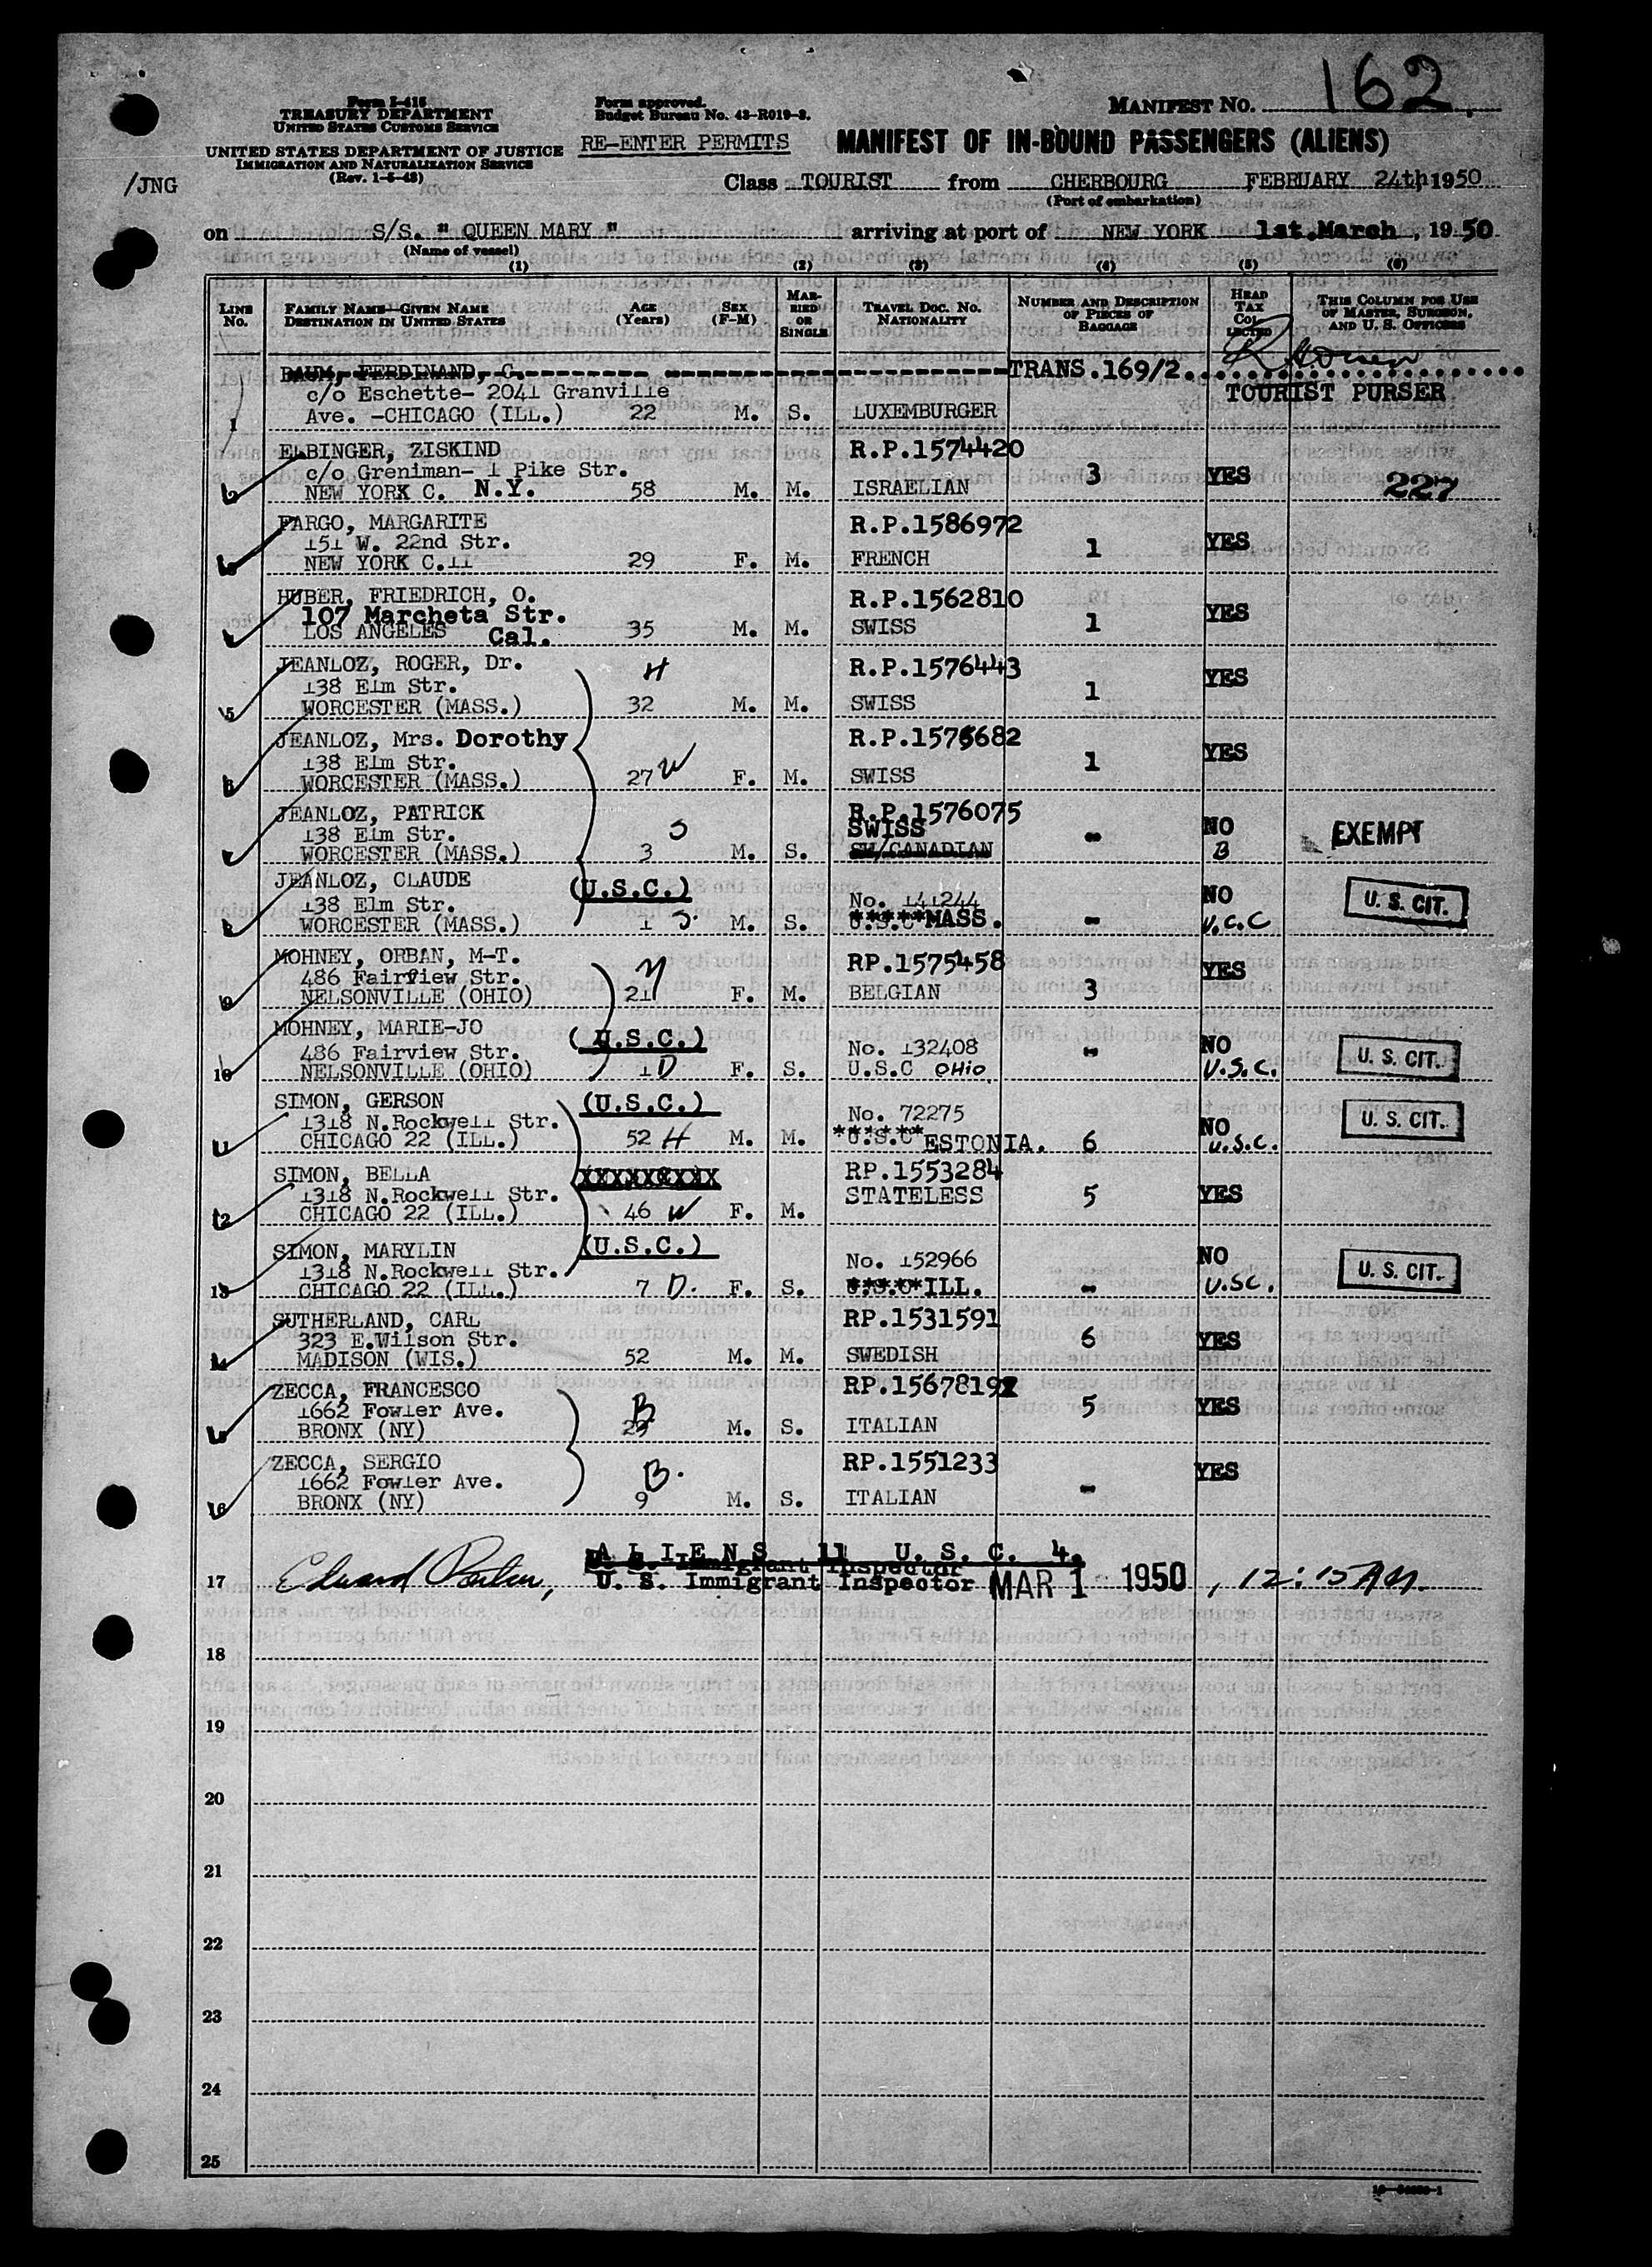 162
Form I-415
TREASURY DEPARTMENT
UNITED STATES CUSTOMS SERVICE
UNITED STATES DEPARTMENT OF JUSTICE
IMMIGRATION AND NATURALIZATION SERVICE
(Rev. 1-5-48)
/JNG
Form approved.
Budget Bureau No. 43-R019-3.
RE-ENTER PERMITS
MANIFEST NO.
MANIFEST OF IN-BOUND PASSENGERS (ALIENS)
Class TOURIST from CHERBOURG FEBRUARY 24th, 1950
(Port of embarkation)
on S/S. " QUEEN MARY " arriving at port of NEW YORK 1st.March, 1950
(Name of vessel)
(1) (2) (3) (4) (5) (6)
LINE No.
FAMILY NAME—GIVEN NAME
DESTINATION IN UNITED STATES
AGE (Years)
SEX (F-M)
MARRIED OR SINGLE
TRAVEL DOC. NO. NATIONALITY
NUMBER AND DESCRIPTION OF PIECES OF BAGGAGE
HEAD TAX COLLECTED
THIS COLUMN FOR USE OF MASTER, SURGEON, AND U. S. OFFICERS
BAUM, FERDINAND, C. TRANS.169/2
TOURIST PURSER
c/o Eschette- 2041 Granville
1 Ave. -CHICAGO (ILL.) 22 M. S. LUXEMBURGER
ELBINGER, ZISKIND R.P.1574420
c/o Greniman- 1 Pike Str. 3 YES
2 NEW YORK C. N.Y. 58 M. M. ISRAELIAN 227
FARGO, MARGARITE R.P.1586972
151 W. 22nd Str. 1 YES
3 NEW YORK C.11 29 F. M. FRENCH
HUBER, FRIEDRICH, O. R.P.1562810
107 Marcheta Str. 1 YES
4 LOS ANGELES Cal. 35 M. M. SWISS
JEANLOZ, ROGER, Dr. H R.P.1576443
138 Elm Str. 1 YES
5 WORCESTER (MASS.) 32 M. M. SWISS
JEANLOZ, Mrs. Dorothy R.P.1576682
138 Elm Str. 1 YES
6 WORCESTER (MASS.) 27 W F. M. SWISS
JEANLOZ, PATRICK R.P.1576075
138 Elm Str. S SWISS - NO EXEMPT
7 WORCESTER (MASS.) 3 M. S. SW/CANADIAN B
JEANLOZ, CLAUDE (U.S.C.)
138 Elm Str. No. 141244 NO U. S. CIT.
8 WORCESTER (MASS.) 1 S. M. S. U.S.C MASS. - U.S.C
MOHNEY, ORBAN, M-T. RP.1575458
486 Fairfiew Str. YES
9 NELSONVILLE (OHIO) 21 F. M. BELGIAN 3
MOHNEY, MARIE-JO (U.S.C.)
486 Fairview Str. No. 132408 - NO U. S. CIT.
10 NELSONVILLE (OHIO) 1 D F. S. U.S.C OHIO U.S.C.
SIMON, GERSON (U.S.C.)
1318 N.Rockwell Str. No. 72275 NO U. S. CIT.
11 CHICAGO 22 (ILL.) 52 H M. M. U.S.C ESTONIA. 6 U.S.C.
SIMON, BELLA XXXXXXXXXX RP.1553284
1318 N.Rockwell Str. STATELESS 5 YES
12 CHICAGO 22 (ILL.) 46 W F. M.
SIMON, MARYLIN (U.S.C.)
1318 N.Rockwell Str. No. 152966 NO U. S. CIT.
13 CHICAGO 22 (ILL.) 7 D. F. S. U.S.C ILL. - U.SC.
SUTHERLAND, CARL RP.1531591
323 E.Wilson Str. 6 YES
14 MADISON (WIS.) 52 M. M. SWEDISH
ZECCA, FRANCESCO RP.1567819
1662 Fowler Ave. B 5 YES
15 BRONX (NY) M. S. ITALIAN
ZECCA, SERGIO RP.1551233
1662 Fowler Ave. B. - YES
16 BRONX (NY) 9 M. S. ITALIAN
ALIENS 11 U. S. C. 4.
17 Edward U. S. Immigrant Inspector MAR 1 1950, 12:15 AM.
18
19
20
21
22
23
24
25